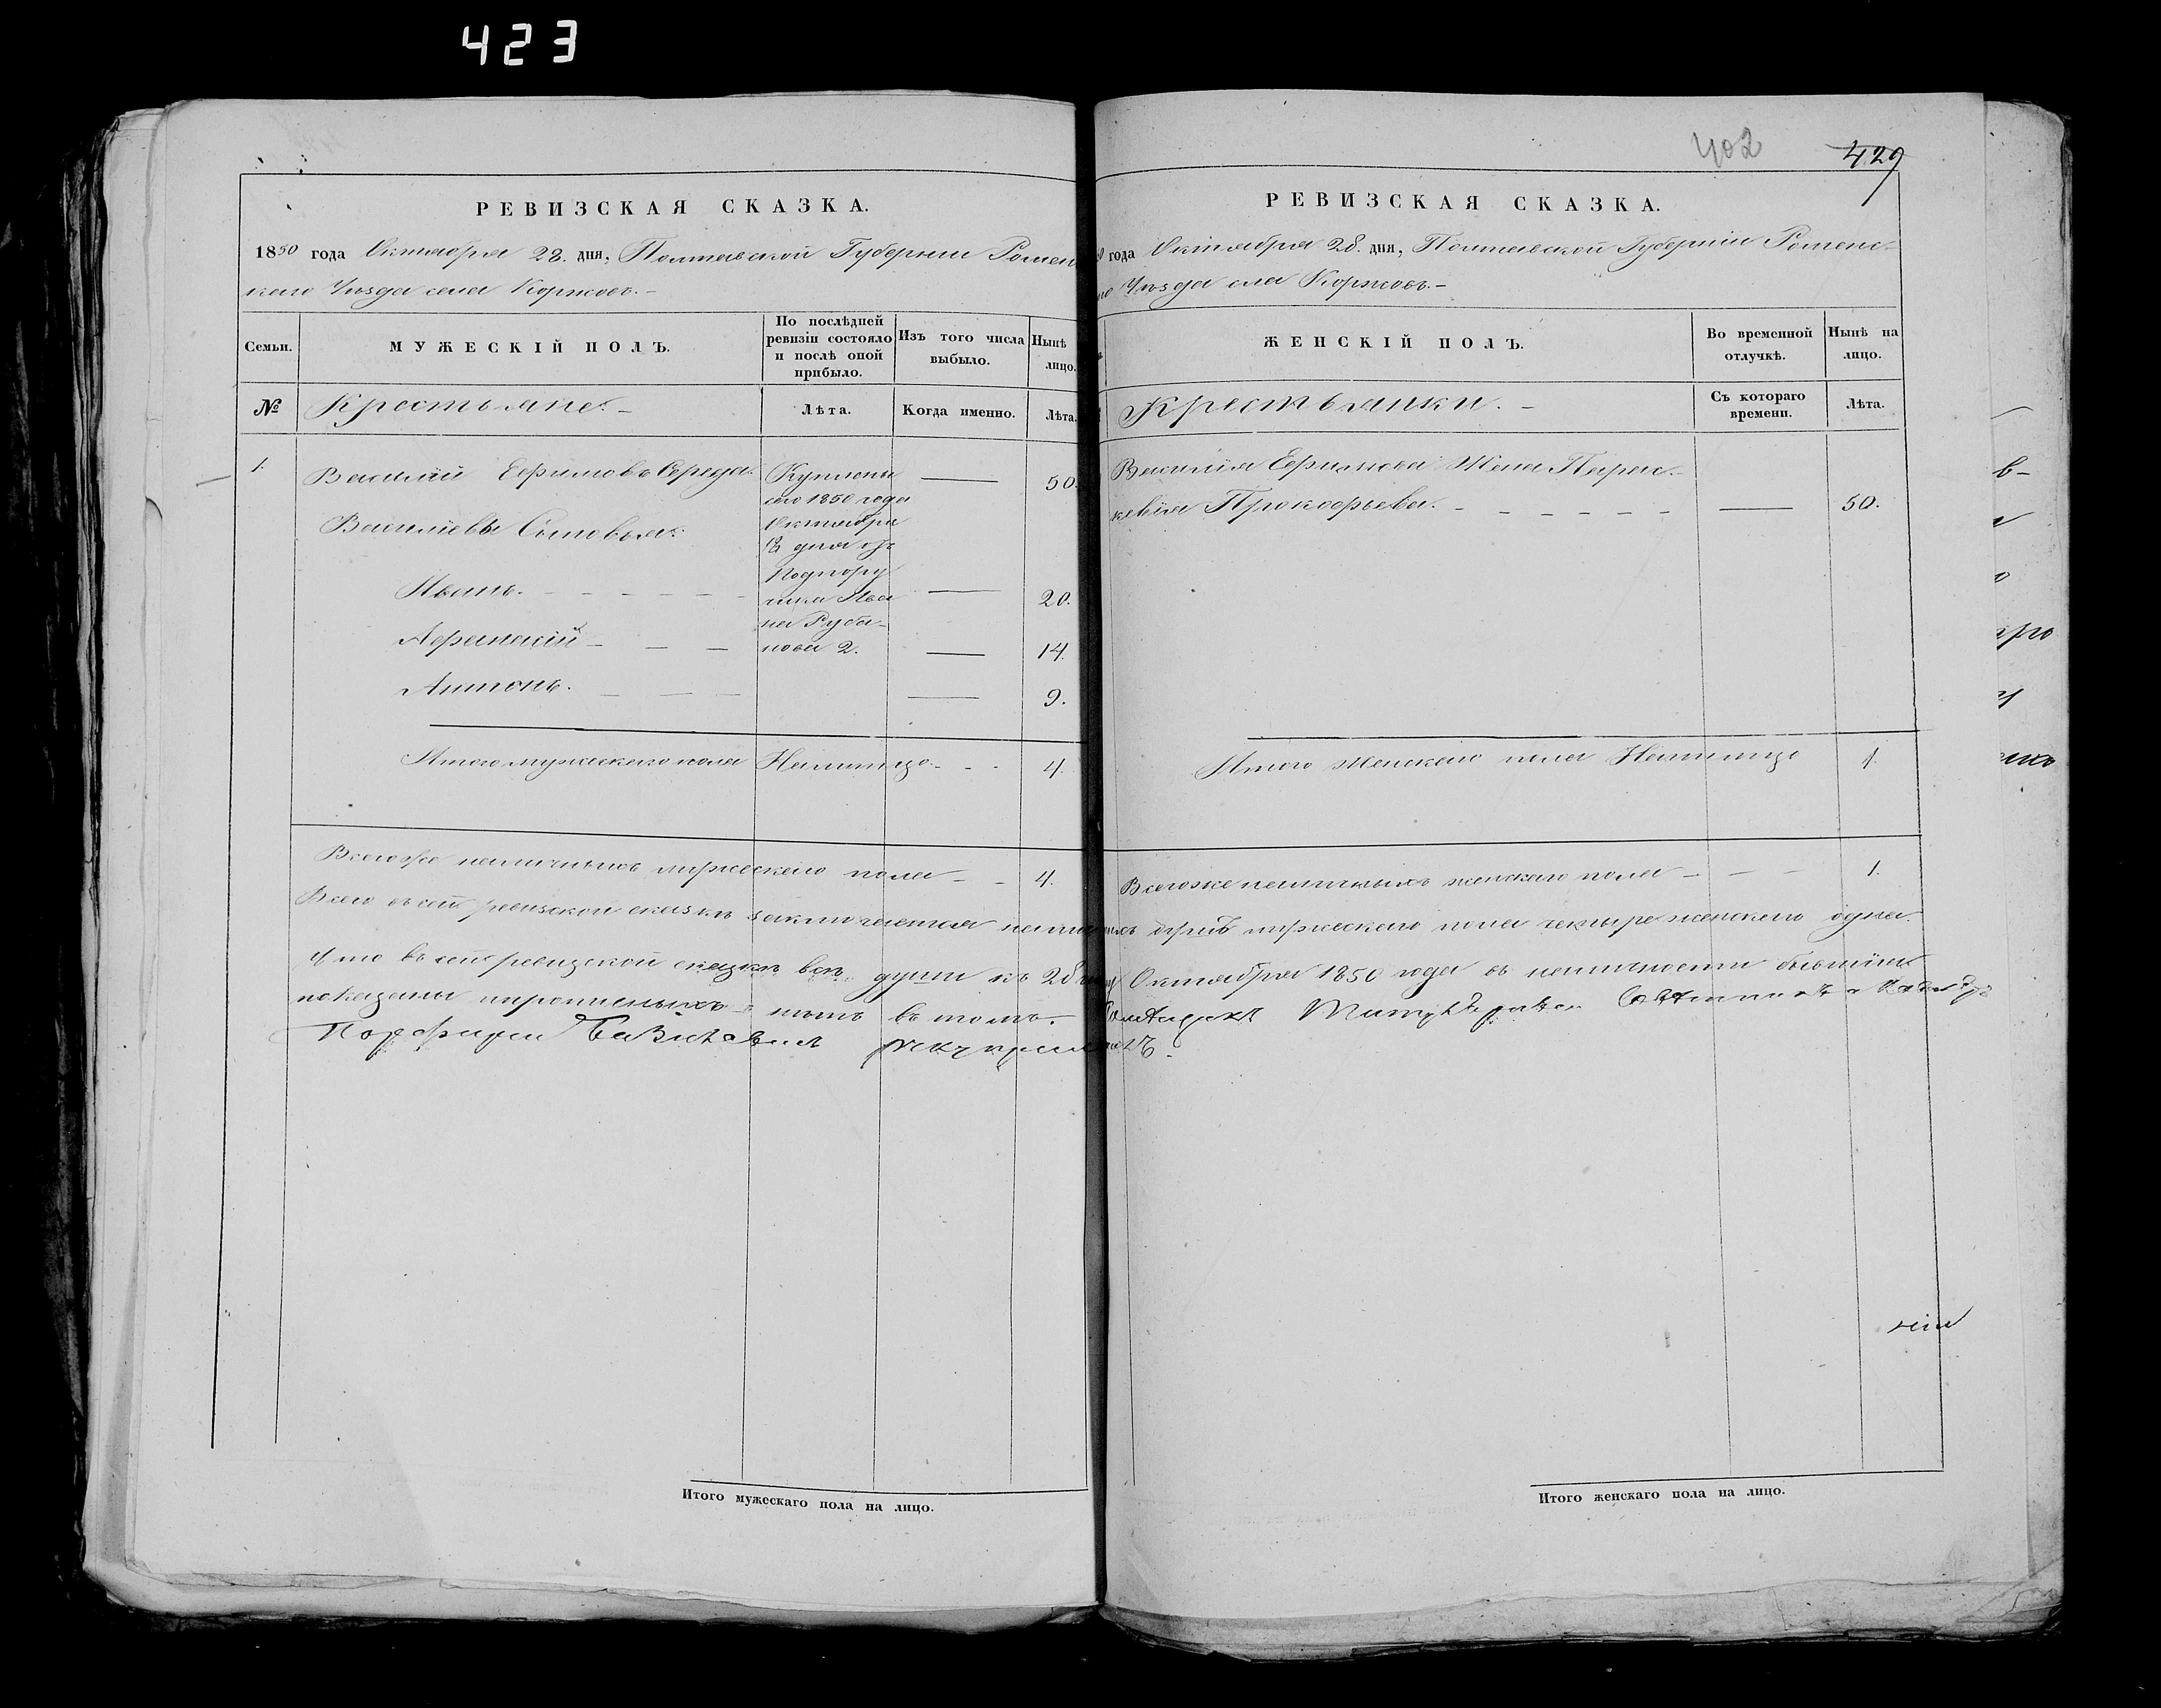 423
РЕВИЗСКАЯ СКАЗКА.
1850 года Октября 28. дня, Полтавской Губернии Ромен
скаго Уѣзда села Коржовъ.-
Семьи.
МУЖЕСКІЙ ПОЛЪ.
По послѣдней
ревизіи состояло
и послѣ оной
прибыло.
Изъ того числа
выбыло.
Нынѣ
лицо.
№
Крестьяне. -
Лѣта.
Когда именно.
Лѣта.
1.
Василій Ефимовъ Середа.
50.
Куплены
сего 1850 года
Октября
дня отъ
Подпору
чика Ива
на Руба-
нова 2.
Васильевы Сыновья.
Иванъ. 20.
Афанасій 14.
Антонъ. 9.
Итого мужескаго пола Налицо. 4.
Всегоже наличныхъ мужескаго пола 4.
402
429
РЕВИЗСКАЯ СКАЗКА.
года Октября 28. дня, Полтавской Губерніи Роменс-
Уѣзда села Коржовъ.-
ЖЕНСКІЙ ПОЛЪ.
Во временной
отлучкѣ.
Нынѣ на
лицо.
Крестьянки. -
Съ котораго
времени.
Лѣта.
Василія Ефимова Жена Парас-
кевія Прокофьева. 50.
Итого Женскаго пола Налицо 1.
Всегоже наличныхъ женскаго пола 1.
Всего въ сей ревизской сказкѣ заключается наличныхъ душъ мужескаго пола четыре женскаго одна.
Что въ сей ревизской сказкѣ всѣ души къ 28 Октября 1850 года въ наличности бывшіе
показаны пропис нѣтъ въ томъ. Титулярный Совѣтникъ
Порфирій Васильевъ
Итого мужескаго пола на лицо.
Итого женскаго пола на лицо.